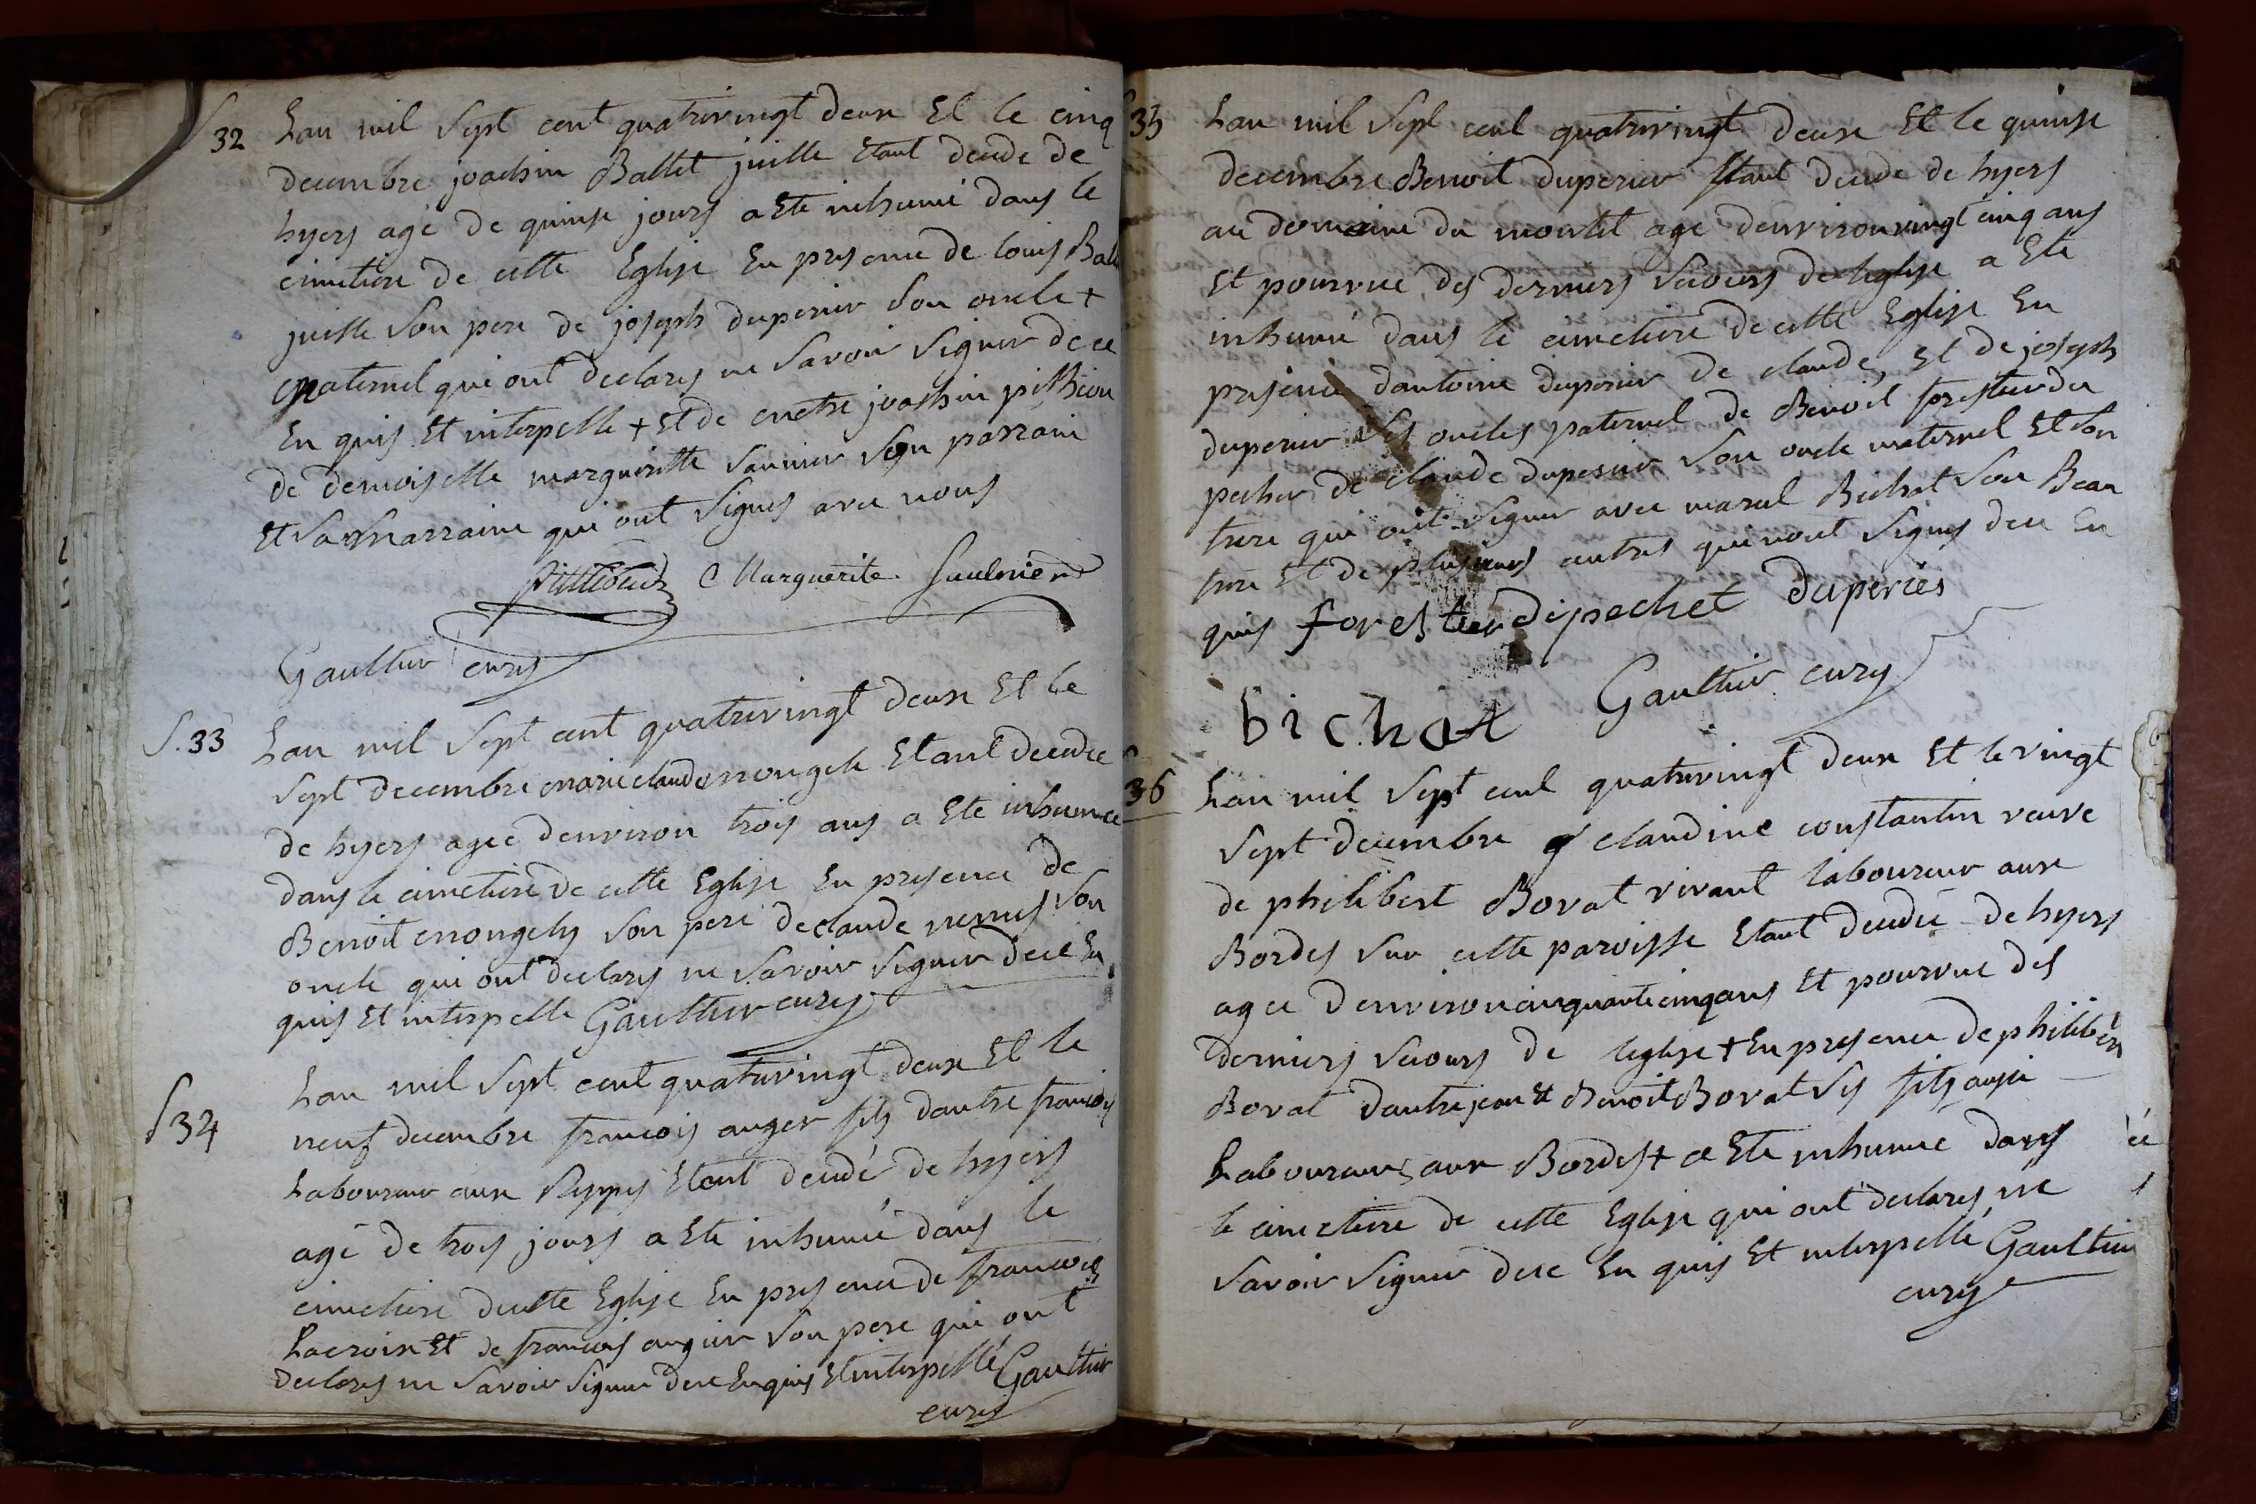 S 32 Lan mil Sept cent quatrevingt deux Et le cinq
decembre joachin Ballet juille Etant decede de
hyers agé de quinse jours a Ete inhumé dans le
cimetiere de cette Eglise En presence de louis Ball
juille Son pere de joseph duperier Son oncle +
maternel qui ont declarés ne Savoir Signer de ce
En quis Et interpellé + Et de metre joachin pitthiou
de demoiselle margueritte Saunier Son parrain
Et Sa Marraine qui ont Signés avec nous
pitthioud C Marguerite. Saulnier
Gaultier curé
S. 33 Lan mil Sept cent quatrevingt deux Et le
Sept decembre marie claude mongely Etant decedee
de hyers agee denviron trois ans a Ete inhumee
dans le cimetiere de cette Eglise En presence de
Benoit mongely Son pere de claude Son
oncle qui ont declarés ne Savoir Signer de ce En
quis Et interpellé Gaultier curé
S 34 Lan mil Sept cent quatrevingt deux Et le
neuf decembre francois auger fils dautre francois
Laboureur aux Etant decedé de hyers
agé de trois jours a Ete inhumé dans le
cimetiere de cette Eglise En presence de francois
Lacroix Et de francois augier Son pere qui ont
declarés ne Savoir Signer de ce Enquis Et interpellé Gaultier
curé
35 Lan mil Sept cent quatrevingt deux Et le quinse
decembre Benoit duperier Etant decede de hyers
au domaine du montet age denviron vingt cinq ans
Et pourvue des derniers Secours de leglise a Ete
inhumé dans le cimetiere de cette Eglise En
presence dantoine duperier de claude, Et de joseph
duperier Ses oncles paternel de Benoit forestier du
pechier de claude duperier Son oncle maternel Et Son
frere qui ont Signer avec marcel Bichat Son Beau
frere Et de plusieurs autres qui nont Signés de ce En
quis forestier dipechet duperiés
bichat Gaultier curé
36 Lan mil Sept cent quatrevingt deux Et le vingt
Sept decembre claudine constantin veuve
de philibert Borat vivant laboureur aux
Bordes Sur cette paroisse Etant decedée de hyers
agee denviron cinquantecinq ans Et pourvue des
derniers Secours de leglise + En presence de philibert
Borat dautre jean & Benoit Borat Ses fils aussi
Laboureurs aux Bordes + a Ete inhumee dans
le cimetiere de cette Eglise qui ont declarés ne
Savoir Signer de ce En quis Et interpellé Gaultier
curé